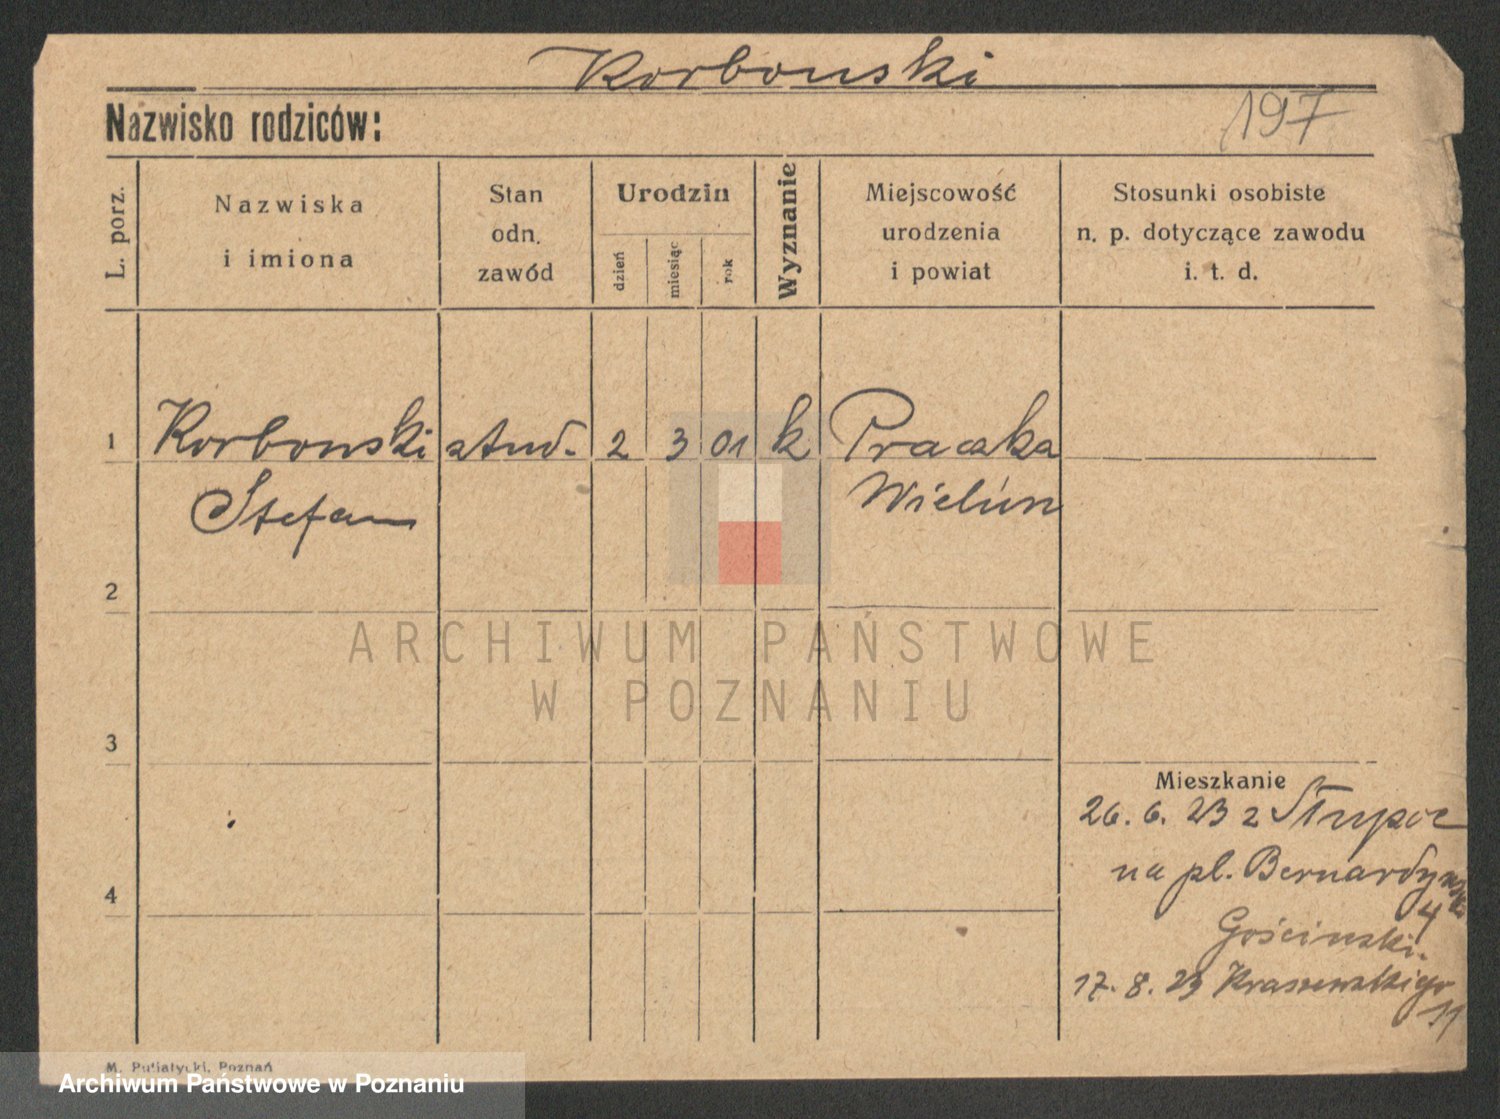 Korbonski
Nazwisko rodziców:
197
L. porz.
Nazwiska
i imiona
Stan
odn.
zawód
Urodzin
dzień
miesiąc
rok
Wyznanie
Miejscowość
urodzenia
i powiat
Stosunki osobiste
n. p. dotyczące zawodu
i. t. d.
1 Korbonski stud. 2 3 01 k Praszka
Stefan Wielun
2
ARCHIWUM PAŃSTWOWE
W POZNANIU
3
Mieszkanie
26. 6. 23 z
na pl. Bernardyński
4
4
Gościnski.
17. 8. 23 Kraszewskiego
11
M. Putiatycki, Poznań
Archiwum Państwowe w Poznaniu